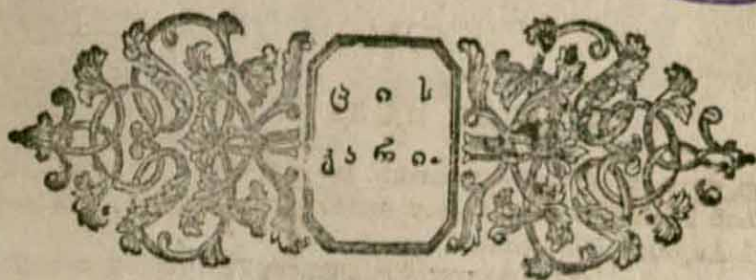 ცის
კარი.